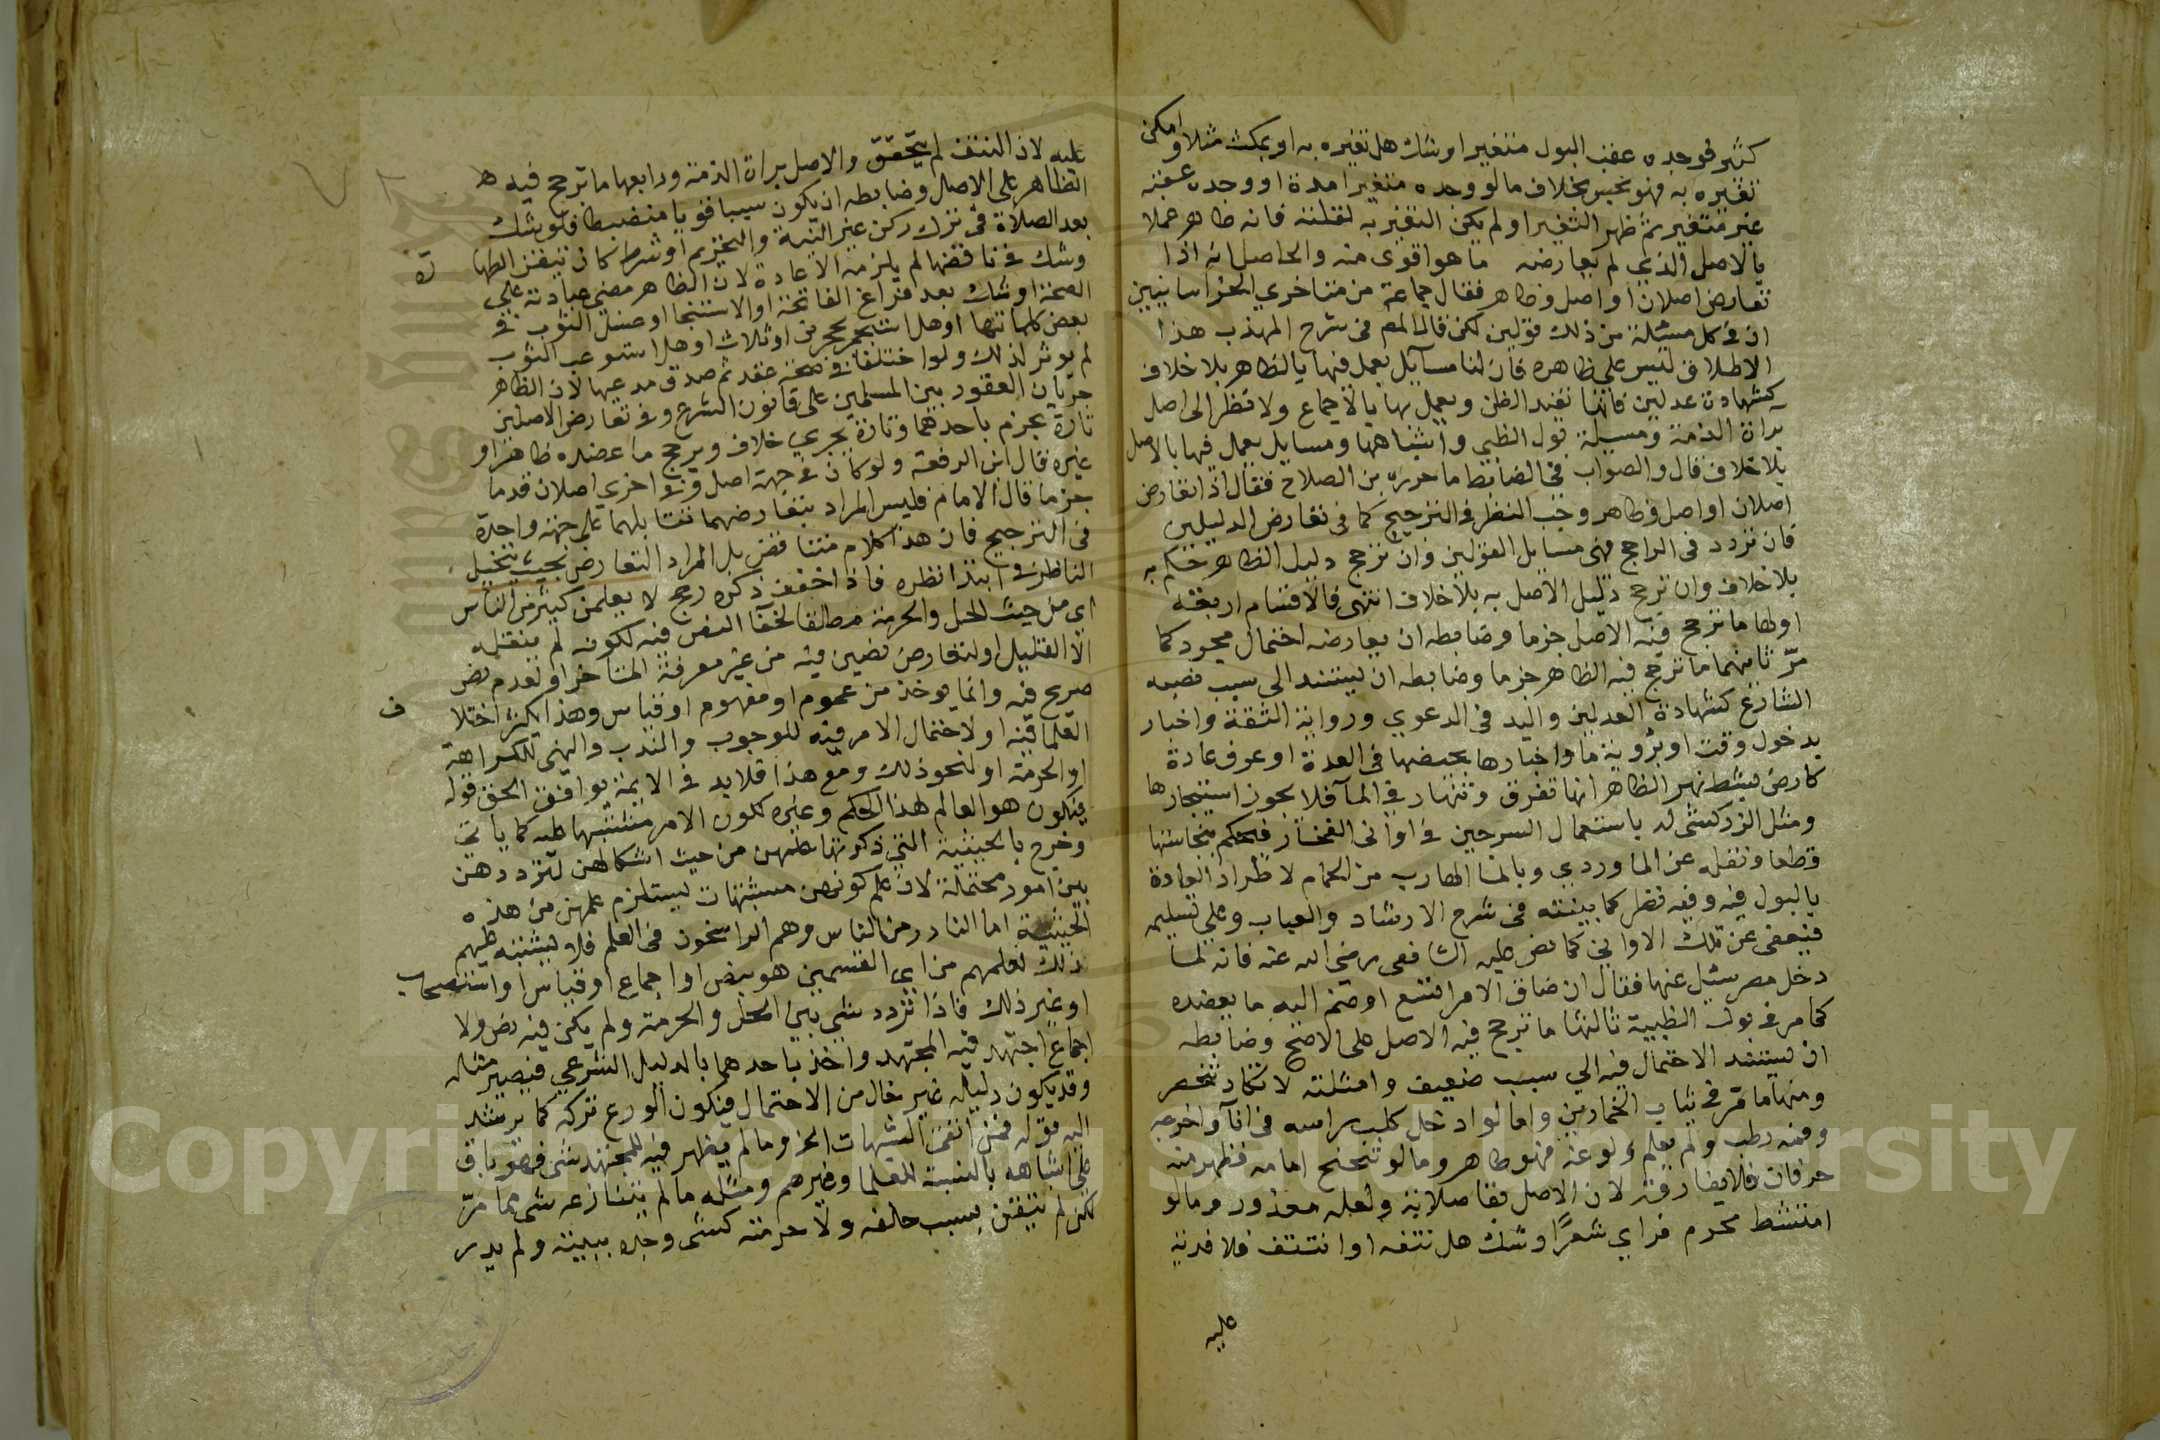 كثير فوجده عقب البول متغيرا وشك هل تغيره به او بمكث مثلا وامكن
تغيره به فهو نجس بخلاف ما لو وجده متغيرا مدة او وجده عقبه
غير متغير ثم ظهر التغير او لم يكن التغير به لقلته فانه طاهر عملا
بالاصل الذي لم يعارضه ما هو اقوى منه والحاصل انه اذا
تعارض اصلان او اصل وظاهر فقال جماعة من متاخري الخراسانيين
ان في كل مسئلة من ذلك قولين لكن قال المص في شرح المهذب هذا
الاطلاق ليس على ظاهره فان لنا مسايل يعمل فيها بالظاهر بلا خلاف
كشهادة عدلين فانها تفيد الظن ويعمل بها بالاجماع ولا نظر الى اصل
براة الذمة ومسيلة بول الظبي واشباهها ومسايل يعمل فيها بالاصل
بلا خلاف قال والصواب في الضابط ما حرره بن الصلاح فقال اذا تعارض
اصلان او اصل وظاهر وجب النظر في الترجيح كما في تعارض الدليلين
فان تردد في الراجح فهي مسايل القولين وان ترجح دليل الظاهر حكم به
بلا خلاف وان ترجح دليل الاصل به بلا خلاف انتهى فالاقسام اربعة
اولها ما ترجح فيه الاصل جزما وضابطه ان يعارضه احتمال مجرد كما
مرّ ثانيهما ما ترجح فيه الظاهر جزما وضابطه ان يستند الى سبب نصبه
الشارع كشهادة العدلين واليد في الدعوي ورواية الثقة واخبار
بدخول وقت او برؤية ما واخبارها بحيضها في العدة او عرف عادة
كارض بشط نهر الظاهر انها تغرق وتنهار في الما فلا يجوز استيجارها
ومثل الزركشي له باستعمال السرجين في اواني الفخار فيحكم بنجاستها
قطعا ونقله عن الماوردي وبالما الهارب من الحمام لاطراد العادة
بالبول فيه وفيه نظر كما بينته في شرح الارشاد والعباب وعلى تسليمه
فيعفى عن تلك الاواني كما نص عليه الشافعي رضي الله عنه فانه لما
دخل مصر سئل عنها فقال ان ضاق الامر اتسع او ضم اليه ما يعضده
كما مر في بول الظبية ثالثها ما ترجح فيه الاصل على الاصح وضابطه
ان يستند الاحتمال فيه الي سبب ضعيف وامثلته لا تكاد تنحصر
ومنها ما مرّ في ثياب الخمارين واما لو ادخل كلب راسه في انآ واخرجه
وفمه رطب ولم يعلم ولوغه فهو طاهر وما لو تنحنح امامه فظهر منه
حرفان فلا يفارقه لان الاصل بقا صلاته ولعله معذور وما لو
امتشط محرم فراي شعرًا وشك هل نتفه او انتتف فلا فدية
عليه
عليه لان النتف لم يتحقق والاصل براة الذمة ورابعها ما ترجح فيه
الظاهر على الاصل وضابطه ان يكون سببا قويا منضبطا فلو شك
بعد الصلاة في ترك ركن غير النية والتحريم او شرط كان تيقن الطهارة
وشك في ناقضها لم يلزمه الاعادة لان الظاهر مضي عبادته على
الصحة او شك بعد فراغ الفاتحة او الاستنجا او غسل الثوب في
بعض كلماتها او هل استجمر بحجرين او ثلاث او هل استوعب الثوب
لم يوثر لذلك ولو اختلفا في صحة عقد ثم صدق مدعيها لان الظاهر
جريان العقود بين المسلمين على قانون الشرع وفي تعارض الاصلين
تارة يجزم باحدهما وتارة يجري خلاف ويرجح ما عضده ظاهر او
غيره قال ابن الرفعة ولو كان في جهة اصل وفي اخري اصلان قدما
جزما قال الامام فليس المراد بتعارضهما تقابلهما على جهة واحدة
في الترجيح فان هذا كلام متناقض بل المراد التعارض بحيث يتخيل
الناظر في ابتدا نظره فاذا اخفف ذكره رجح لا يعلمن كثير من الناس
اي من حيث الحل والحرمة مطلقا لخفآ النص فيه لكونه لم ينقله
الا القليل او لتعارض نصين فيه من غير معرفة المتاخر او لعدم نص
صريح فيه وانما يوخذ من عموم او مفهوم او قياس وهذا يكثر اختلاف
العلما فيه او لاحتمال الامر فيه للوجوب والندب والنهي للكراهة
او الحرمة او لنحو ذلك ومع هذا فلا بد في الايمة يوافق الحق قوله
فيكون هو العالم لهذا الحكم وغيره لكون الامر مشتبها عليه كما ياتي
وخرج بالحيثية التي ذكرتها علمهن من حيث اشكالهن لترددهن
بين امور محتملة لان علم كونهن مشتبهات يستلزم علمهن من هذه
الحيثية اما النادر من الناس وهم الراسخون في العلم فلا يشتبه عليهم
ذلك لعلمهم من اي القسمين هو بنص او اجماع او قياس او استصحاب
او غير ذلك فاذا تردد شي بين الحل والحرمة ولم يكن فيه نص ولا
اجماع اجتهد فيه المجتهد واخذ باحدهما بالدليل الشرعي فيصير مثله
وقد يكون دليله غير خال من الاحتمال فيكون الورع تركه كما يرشد
اليه قوله فمن اتقى الشبهات الخ وما لم يظهر فيه للمجتهد شي فهو باق
على اشتباهه بالنسبة للعلما وغيرهم ومثله ما لم يتنازعه شي مما مرّ
لكن لم يتيقن بسبب حله ولا حرمته كشي وجده ببيته ولم يدر
Copyright © King Saud University